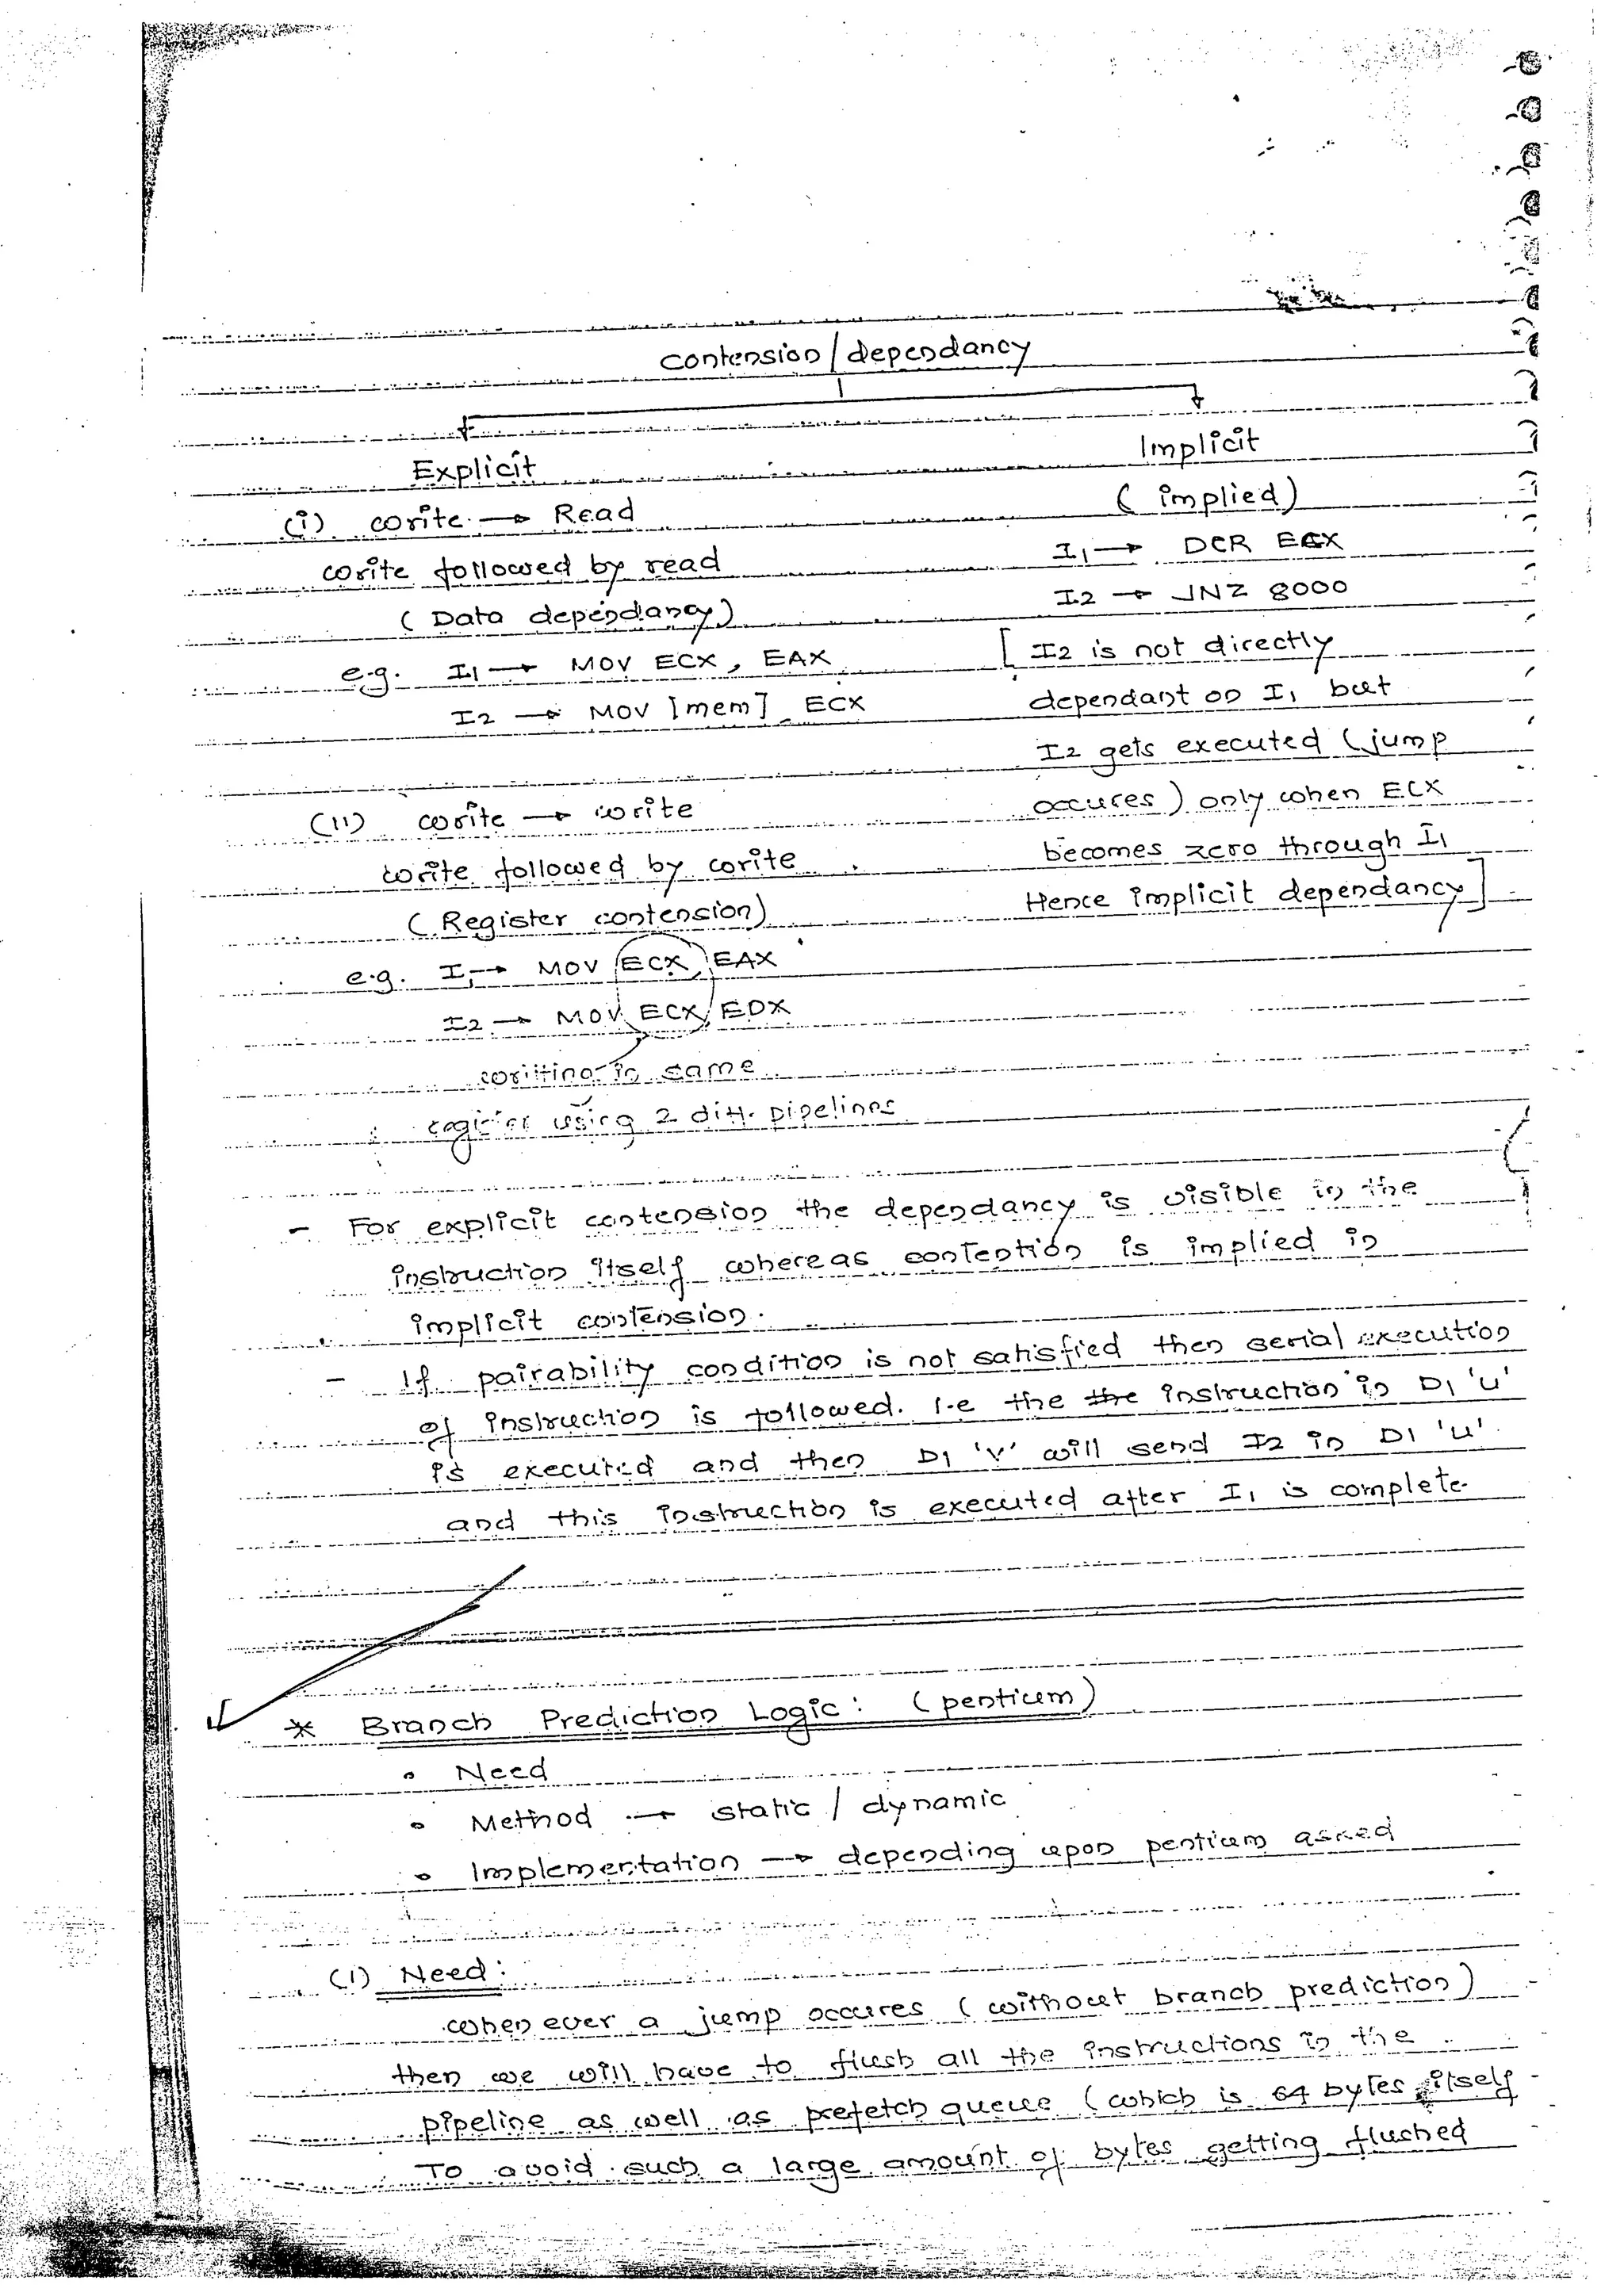 contension/dependancy
Explicit
(i) write → Read
write followed by read
(Data dependancy)
e.g. I1 → MOV ECX, EAX
I2 → MOV [mem], ECX
(ii) write → write
write followed by write
(Register contension)
e.g. I1 → MOV ECX, EAX
I2 → MOV ECX, EDX
writting in same
register using 2 diff. pipelines
Implicit
(implied)
I1 → DCR ECX
I2 → JNZ 8000
[I2 is not directly
dependant on I1 but
I2 gets executed (jump
occures) only when ECX
becomes zero through I1
Hence implicit dependancy]
- For explicit contension the dependancy is visible in the
instruction itself whereas contention is implied in
implicit contension.
- If pairability condition is not satisfied then serial execution
of instruction is followed. i.e the the instruction in D1 'u'
is executed and then D1 'v' will send I2 in D1 'u'.
and this instruction is executed after I1 is complete.
* Branch Prediction Logic: (pentium)
• Need
• Method → static / dynamic
• Implementation → depending upon pentium asked
(1) Need:
when ever a jump occures (without branch prediction)
then we will have to flush all the instructions in the
pipeline as well as prefetch queue (which is 64 bytes itself
To avoid such a large amount of bytes getting flushed